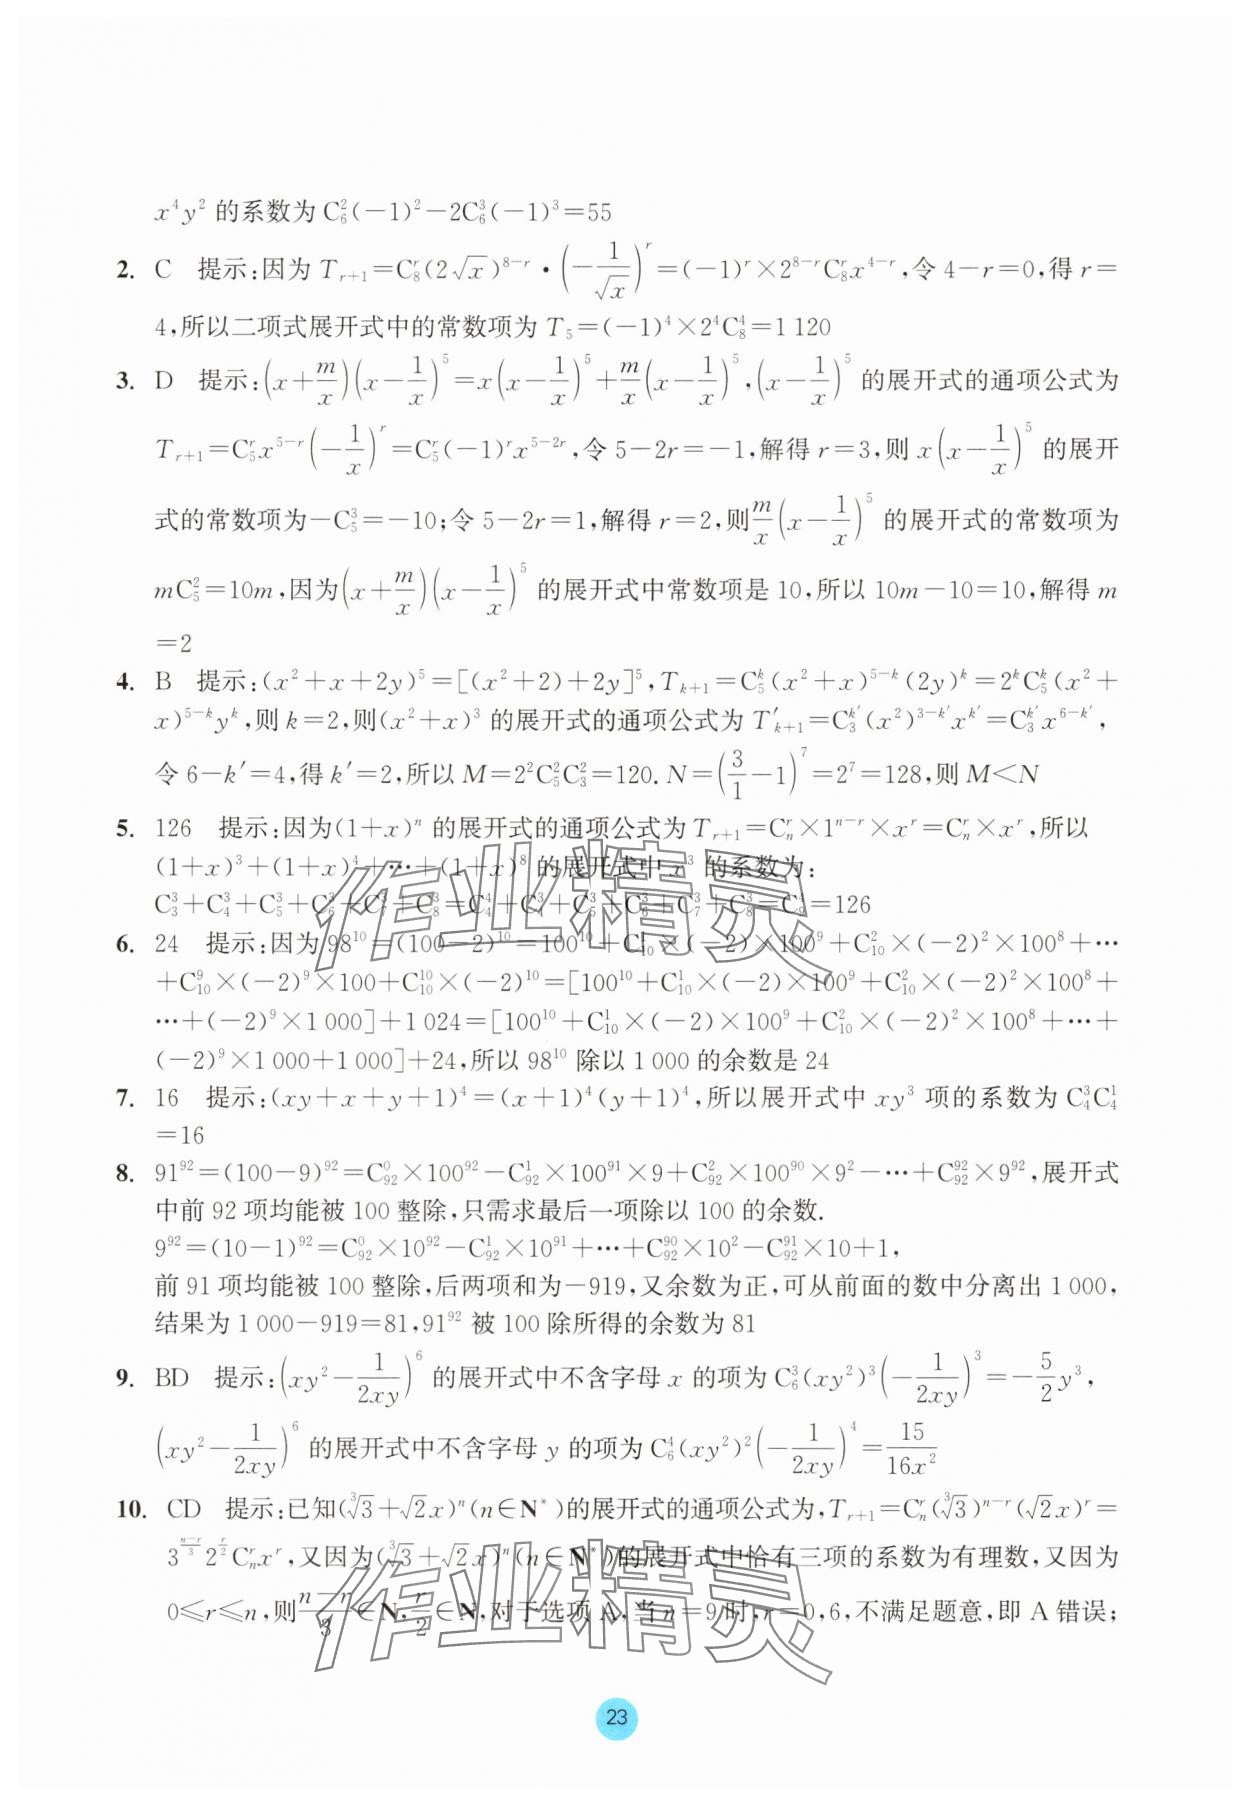 x⁴y² 的系数为 C₆²(−1)²−2C₆³(−1)³=55
2. C 提示:因为 T_{r+1}=C₈^r(2√x)^{8−r}·(−1/√x)^r=(−1)^r×2^{8−r}C₈^r x^{4−r},令 4−r=0,得 r=
4,所以二项式展开式中的常数项为 T₅=(−1)⁴×2⁴C₈⁴=1 120
3. D 提示:(x+m/x)(x−1/x)⁵=x(x−1/x)⁵+m/x(x−1/x)⁵,(x−1/x)⁵ 的展开式的通项公式为
T_{r+1}=C₅^r x^{5−r}(−1/x)^r=C₅^r(−1)^r x^{5−2r},令 5−2r=−1,解得 r=3,则 x(x−1/x)⁵ 的展开
式的常数项为−C₅³=−10;令 5−2r=1,解得 r=2,则m/x(x−1/x)⁵ 的展开式的常数项为
mC₅²=10m,因为(x+m/x)(x−1/x)⁵ 的展开式中常数项是 10,所以 10m−10=10,解得 m
=2
4. B 提示:(x²+x+2y)⁵=[(x²+2)+2y]⁵,T_{k+1}=C₅^k(x²+x)^{5−k}(2y)^k=2^kC₅^k(x²+
x)^{5−k}y^k,则 k=2,则(x²+x)³ 的展开式的通项公式为 T′_{k+1}=C₃^{k′}(x²)^{3−k′}x^{k′}=C₃^{k′}x^{6−k′},
令 6−k′=4,得 k′=2,所以 M=2²C₅²C₃²=120. N=(3/1−1)⁷=2⁷=128,则 M<N
5. 126 提示:因为(1+x)ⁿ 的展开式的通项公式为 T_{r+1}=C_n^r×1^{n−r}×x^r=C_n^r×x^r,所以
(1+x)³+(1+x)⁴+⋯+(1+x)⁸ 的展开式中 x³ 的系数为:
C₃³+C₄³+C₅³+C₆³+C₇³+C₈³=C₄⁴+C₄³+C₅³+C₆³+C₇³+C₈³=C₉⁴=126
6. 24 提示:因为 98¹⁰=(100−2)¹⁰=100¹⁰+C₁₀¹×(−2)×100⁹+C₁₀²×(−2)²×100⁸+⋯
+C₁₀⁹×(−2)⁹×100+C₁₀¹⁰×(−2)¹⁰=[100¹⁰+C₁₀¹×(−2)×100⁹+C₁₀²×(−2)²×100⁸+
⋯+(−2)⁹×1 000]+1 024=[100¹⁰+C₁₀¹×(−2)×100⁹+C₁₀²×(−2)²×100⁸+⋯+
(−2)⁹×1 000+1 000]+24,所以 98¹⁰ 除以 1 000 的余数是 24
7. 16 提示:(xy+x+y+1)⁴=(x+1)⁴(y+1)⁴,所以展开式中 xy³ 项的系数为 C₄³C₄¹
=16
8. 91⁹²=(100−9)⁹²=C₉₂⁰×100⁹²−C₉₂¹×100⁹¹×9+C₉₂²×100⁹⁰×9²−⋯+C₉₂⁹²×9⁹²,展开式
中前 92 项均能被 100 整除,只需求最后一项除以 100 的余数.
9⁹²=(10−1)⁹²=C₉₂⁰×10⁹²−C₉₂¹×10⁹¹+⋯+C₉₂⁹⁰×10²−C₉₂⁹¹×10+1,
前 91 项均能被 100 整除,后两项和为−919,又余数为正,可从前面的数中分离出 1 000,
结果为 1 000−919=81,91⁹² 被 100 除所得的余数为 81
9. BD 提示:(xy²−1/2xy)⁶ 的展开式中不含字母 x 的项为 C₆³(xy²)³(−1/2xy)³=−5/2y³,
(xy²−1/2xy)⁶ 的展开式中不含字母 y 的项为 C₆⁴(xy²)²(−1/2xy)⁴=15/16x²
10. CD 提示:已知(∛3+√2x)ⁿ(n∈N*)的展开式的通项公式为,T_{r+1}=C_n^r(∛3)^{n−r}(√2x)^r=
3^{(n−r)/3}2^{r/2}C_n^r x^r,又因为(∛3+√2x)ⁿ(n∈N*)的展开式中恰有三项的系数为有理数,又因为
0≤r≤n,则(n−r)/3∈N,r/2∈N,对于选项A,当 n=9时,r=0,6,不满足题意,即 A 错误;
作业精灵
作业精灵
23